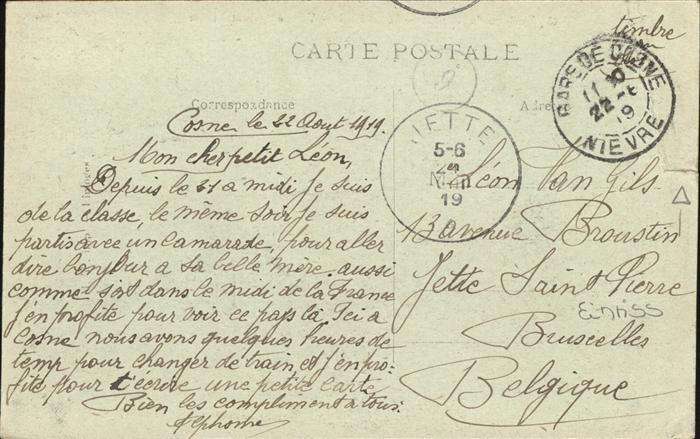 timbre
CARTE POSTALE
Correspondance
GARE DE COSNE
11 22-8 19
NIEVRE
JETTE
5-6
19
Cosne le 22 Aout 1919.
Mon cher petit Léon,
Depuis le 21 a midi je suis
de la classe, le même soir je suis
partis avec un camarade, pour aller
dire bonjour a sa belle mère. aussi
comme s'est dans le midi de la France
j'en profite pour voir ce pays là Ici a
Cosne nous avons quelques heures de
temp pour changer de train et j'en pro-
fite pour t'ecrire une petite carte
Bien les compliment a tous.
Léon Van Gils
13 avenue Broustin
Jette Saint Pierre
Bruxelles
Belgique